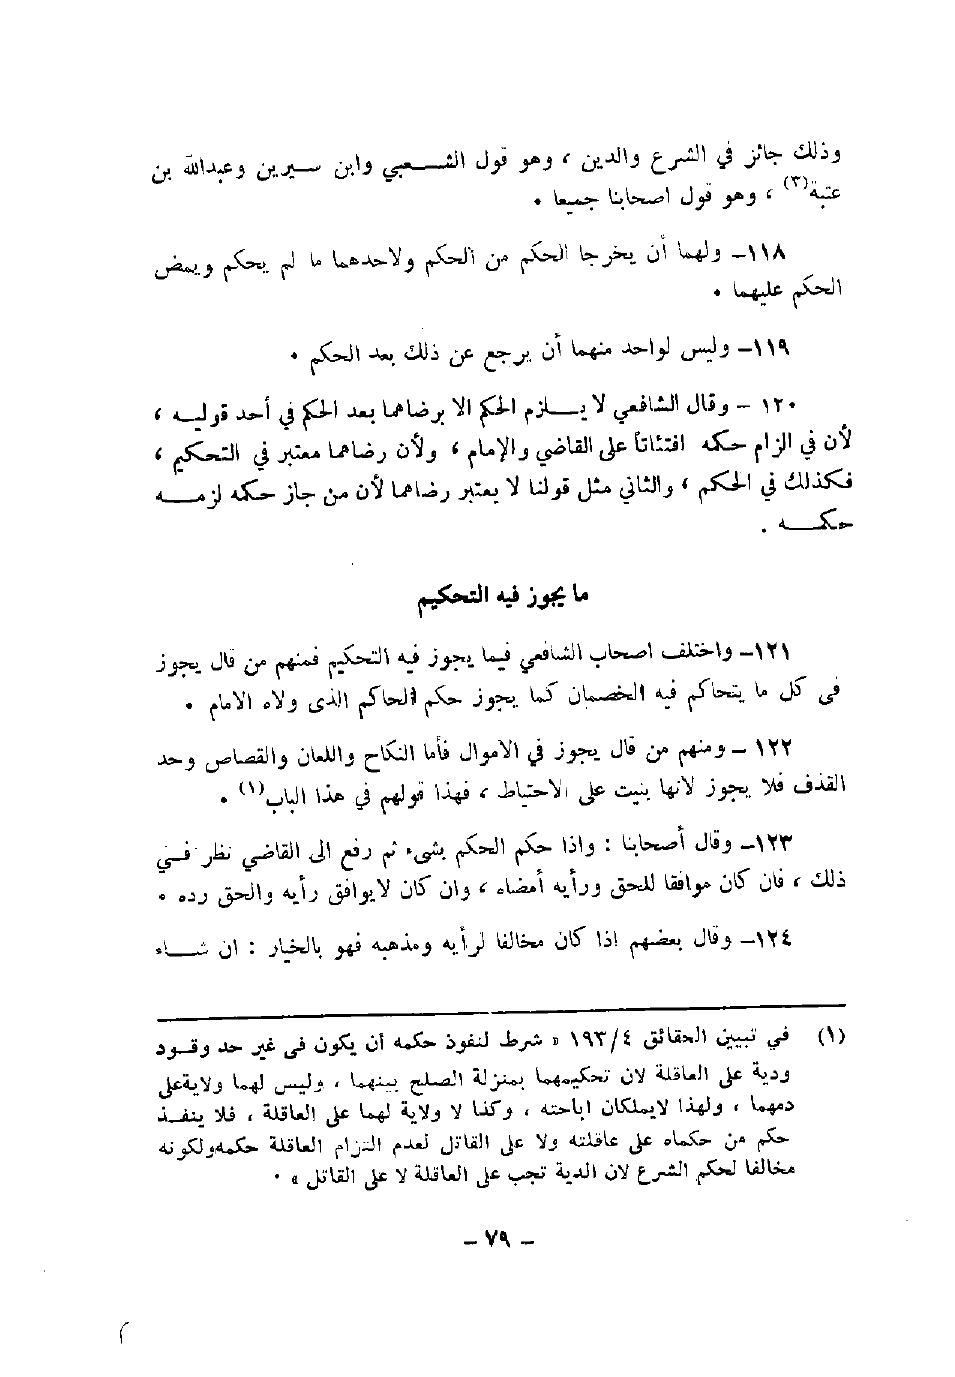 وذلك جائز في الشرع والدين ، وهو قول الشـــعبي وابن سـيرين وعبدالله بن
عتبة(٣) ، وهو قول اصحابنا جميعا .
١١٨ــ ولهما أن يخرجا الحكم من الحكم ولاحدهما ما لم يحكم ويمض
الحكم عليهما .
١١٩ــ وليس لواحد منهما أن يرجع عن ذلك بعد الحكم .
١٢٠ ــ وقال الشافعي لا يـــلزم الحكم الا برضاهما بعد الحكم في أحد قوليــه ،
لأن في الزام حكمه افتئاتاً على القاضي والإمام ، ولأن رضاهما معتبر في التحكيم ،
فكذلك في الحكم ، والثاني مثل قولنا لا يعتبر رضاهما لأن من جاز حكمه لزمـــه
حكـــه .
ما يجوز فيه التحكيم
١٢١ــ واختلف اصحاب الشافعي فيما يجوز فيه التحكيم فمنهم من قال يجوز
في كل ما يتحاكم فيه الخصمان كما يجوز حكم الحاكم الذى ولاه الامام .
١٢٢ ــ ومنهم من قال يجوز في الاموال فأما النكاح واللعان والقصاص وحد
القذف فلا يجوز لانها بنيت على الاحتياط ، فهذا قولهم في هذا الباب(١) .
١٢٣ــ وقال أصحابنا : واذا حكم الحكم بشىء ثم رفع الى القاضي نظر فــي
ذلك ، فان كان موافقا للحق ورأيه أمضاه ، وان كان لايوافق رأيه والحق رده .
١٢٤ــ وقال بعضهم اذا كان مخالفا لرأيه ومذهبه فهو بالخيار : ان شـــاء
(١) في تبيين الحقائق ١٩٣/٤ « شرط لنفوذ حكمه أن يكون فى غير حد وقـود
ودية على العاقلة لان تحكيمهما بمنزلة الصلح بينهما ، وليس لهما ولايةعلى
دمهما ، ولهذا لايملكان اباحته ، وكذا لا ولاية لهما على العاقلة ، فلا ينفـذ
حكم من حكماه على عاقلته ولا على القاتل لعدم التزام العاقلة حكمه‌ولكونه
مخالفا لحكم الشرع لان الدية تجب على العاقلة لا على القاتل » .
ــ ٧٩ ــ